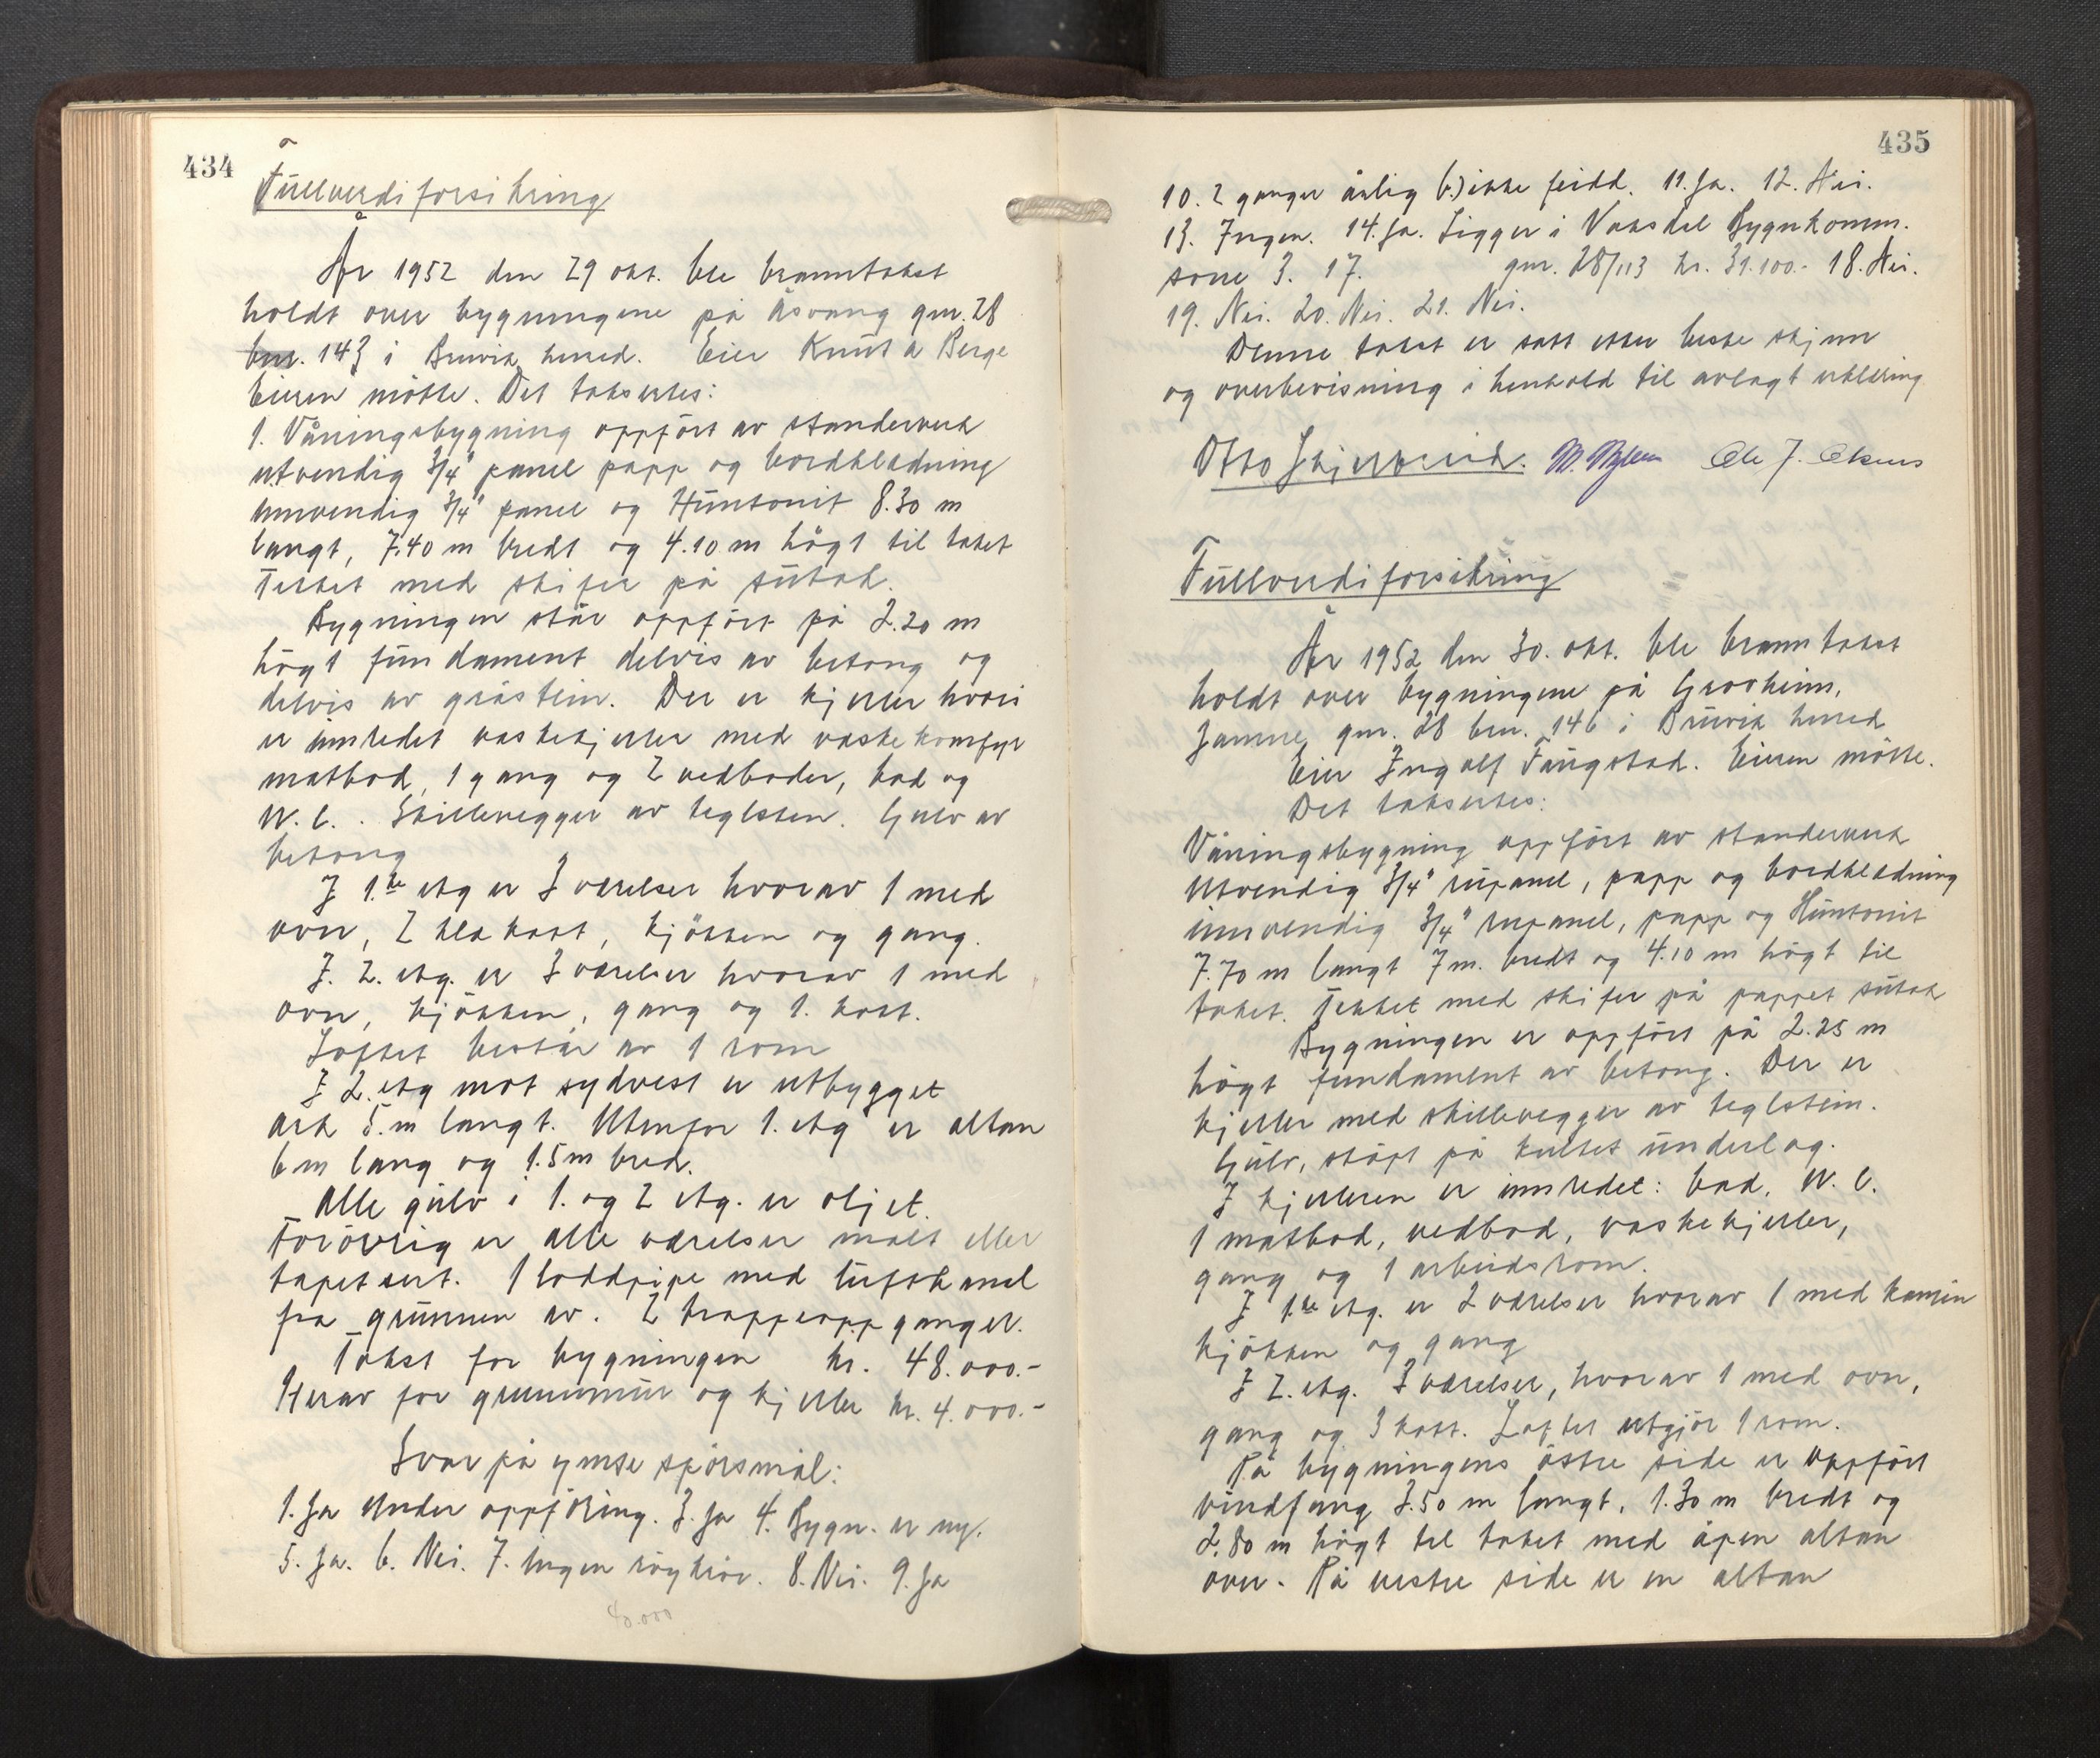 434
Fullverdiforsikring
År 1952 den 29 okt. ble branntakst
holdt over bygningene på Åsvang gnr. 28
bnr. 143 i Bruvik herred. Eier Knut A Berge
Eieren møtte. Det taksertes:
1. Våningsbygning oppført av standerverk
utvendig 3/4" panel papp og bordkledning
innvendig 3/4" panel og Huntonit 8.30 m
langt, 7.40 m bredt og 4.10 m högt til taket
Tekket med skifer på sutak.
Bygningen står oppført på 2.20 m
högt fundament delvis av betong og
delvis av gråstein. Der er kjeller hvori
er innredet vaskekjeller med vaskekomfyr
matbod, 1 gang og 2 vedboder, bad og
W.C.. Skillevegger av teglsten. Gulv av
betong
I 1.ste etg er 3 værelser hvorav 1 med
ovn, 2 kle kott, kjökken og gang.
I. 2. etg. er 3 værelser hvorav 1 med
ovn, kjökken, gang og 1. kott.
Loftet består av 1 rom
I 2. etg mot sydvest er utbygget
ark 5.m langt. Utenfor 1. etg er altan
6 m lang og 1.5 m bred.
Alle gulv i 1. og 2 etg. er oljet.
Forövrig er alle værelser malt eller
tapetsert. 1 loddpipe med luftkanal
fra grunnen av. 2 trappeoppganger.
Takst for bygningen kr. 48.000.-
Herav for grunnmur og kjeller kr. 4.000.-
Svar på ymse spörsmål:
1. Ja Under oppföring. 3. Ja 4. Bygn. er ny.
5. Ja. 6. Nei. 7. Ingen röykrör. 8. Nei. 9. Ja
40.000
435
10. 2 ganger årlig b) ikke feidd. 11. Ja. 12. Nei.
13. Ingen. 14. Ja. Ligger i Vaksdal Bygnkomm.
sone 3. 17. gnr. 28/113 kr. 31.100.- 18. Nei.
19. Nei. 20. Nei. 21. Nei.
Denne takst er satt etter beste skjønn
og overbevisning i henhold til avlagt erklæring
Otto Skjerveind. Ole J.
Fullverdiforsikring
År 1952 den 30. okt. ble branntakst
holdt over bygningene på Grovheim,
Jamne gnr. 28 bnr. 146 i Bruvik herred
Eier Ingolf Faugstad. Eieren mötte.
Det taksertes:
Våningsbygning oppfört av standerverk
Utvendig 3/4" rupanel, papp og bordkledning
innvendig 3/4" rupanel, papp og Huntonit
7.70 m langt 7 m. bredt og 4.10 m högt til
taket. Tekket med skifer på pappet sutak
Bygningen er oppfört på 2.25 m
högt fundament av betong. Der er
kjeller med skillevegger av teglstein.
Gulv, stöpt på kultet underlag.
I kjelleren er innredet: bad, W.C.
1 matbod, vedbod, vaskekjeller,
gang og 1 arbeidsrom.
I 1.ste etg. er 2 værelser hvorav 1 med kamin
kjökken og gang
I 2. etg. 3 værelser, hvorav 1 med ovn,
gang og 3 kott. Loftet utgjör 1 rom.
På bygningens östre side er oppfört
vindfang 3.50 m langt, 1.30 m bredt og
2.80 m högt til taket med åpen altan
over. På vestre side er en altan